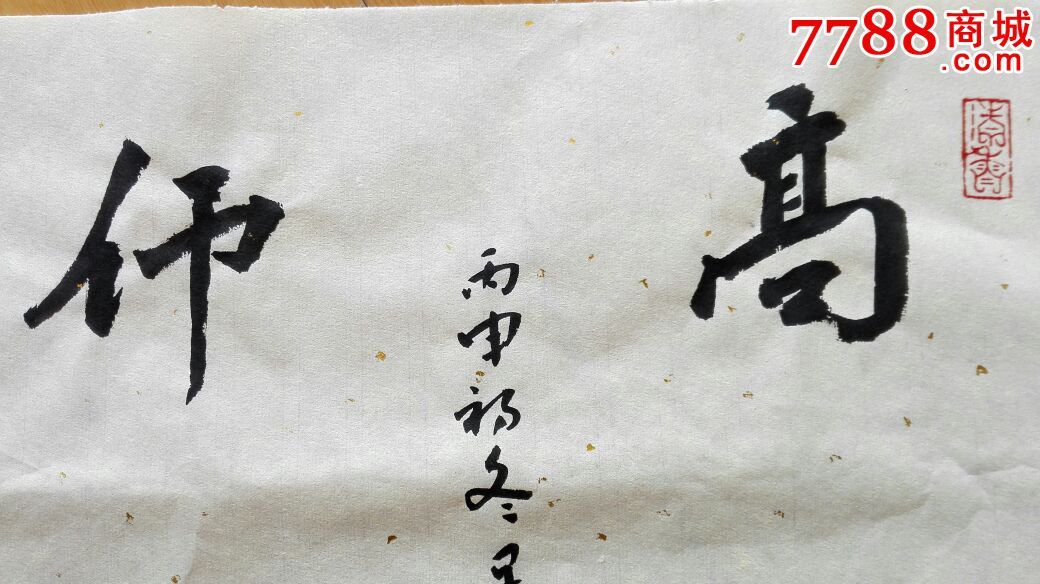 7788商城
.com
高
丙申初冬
仰